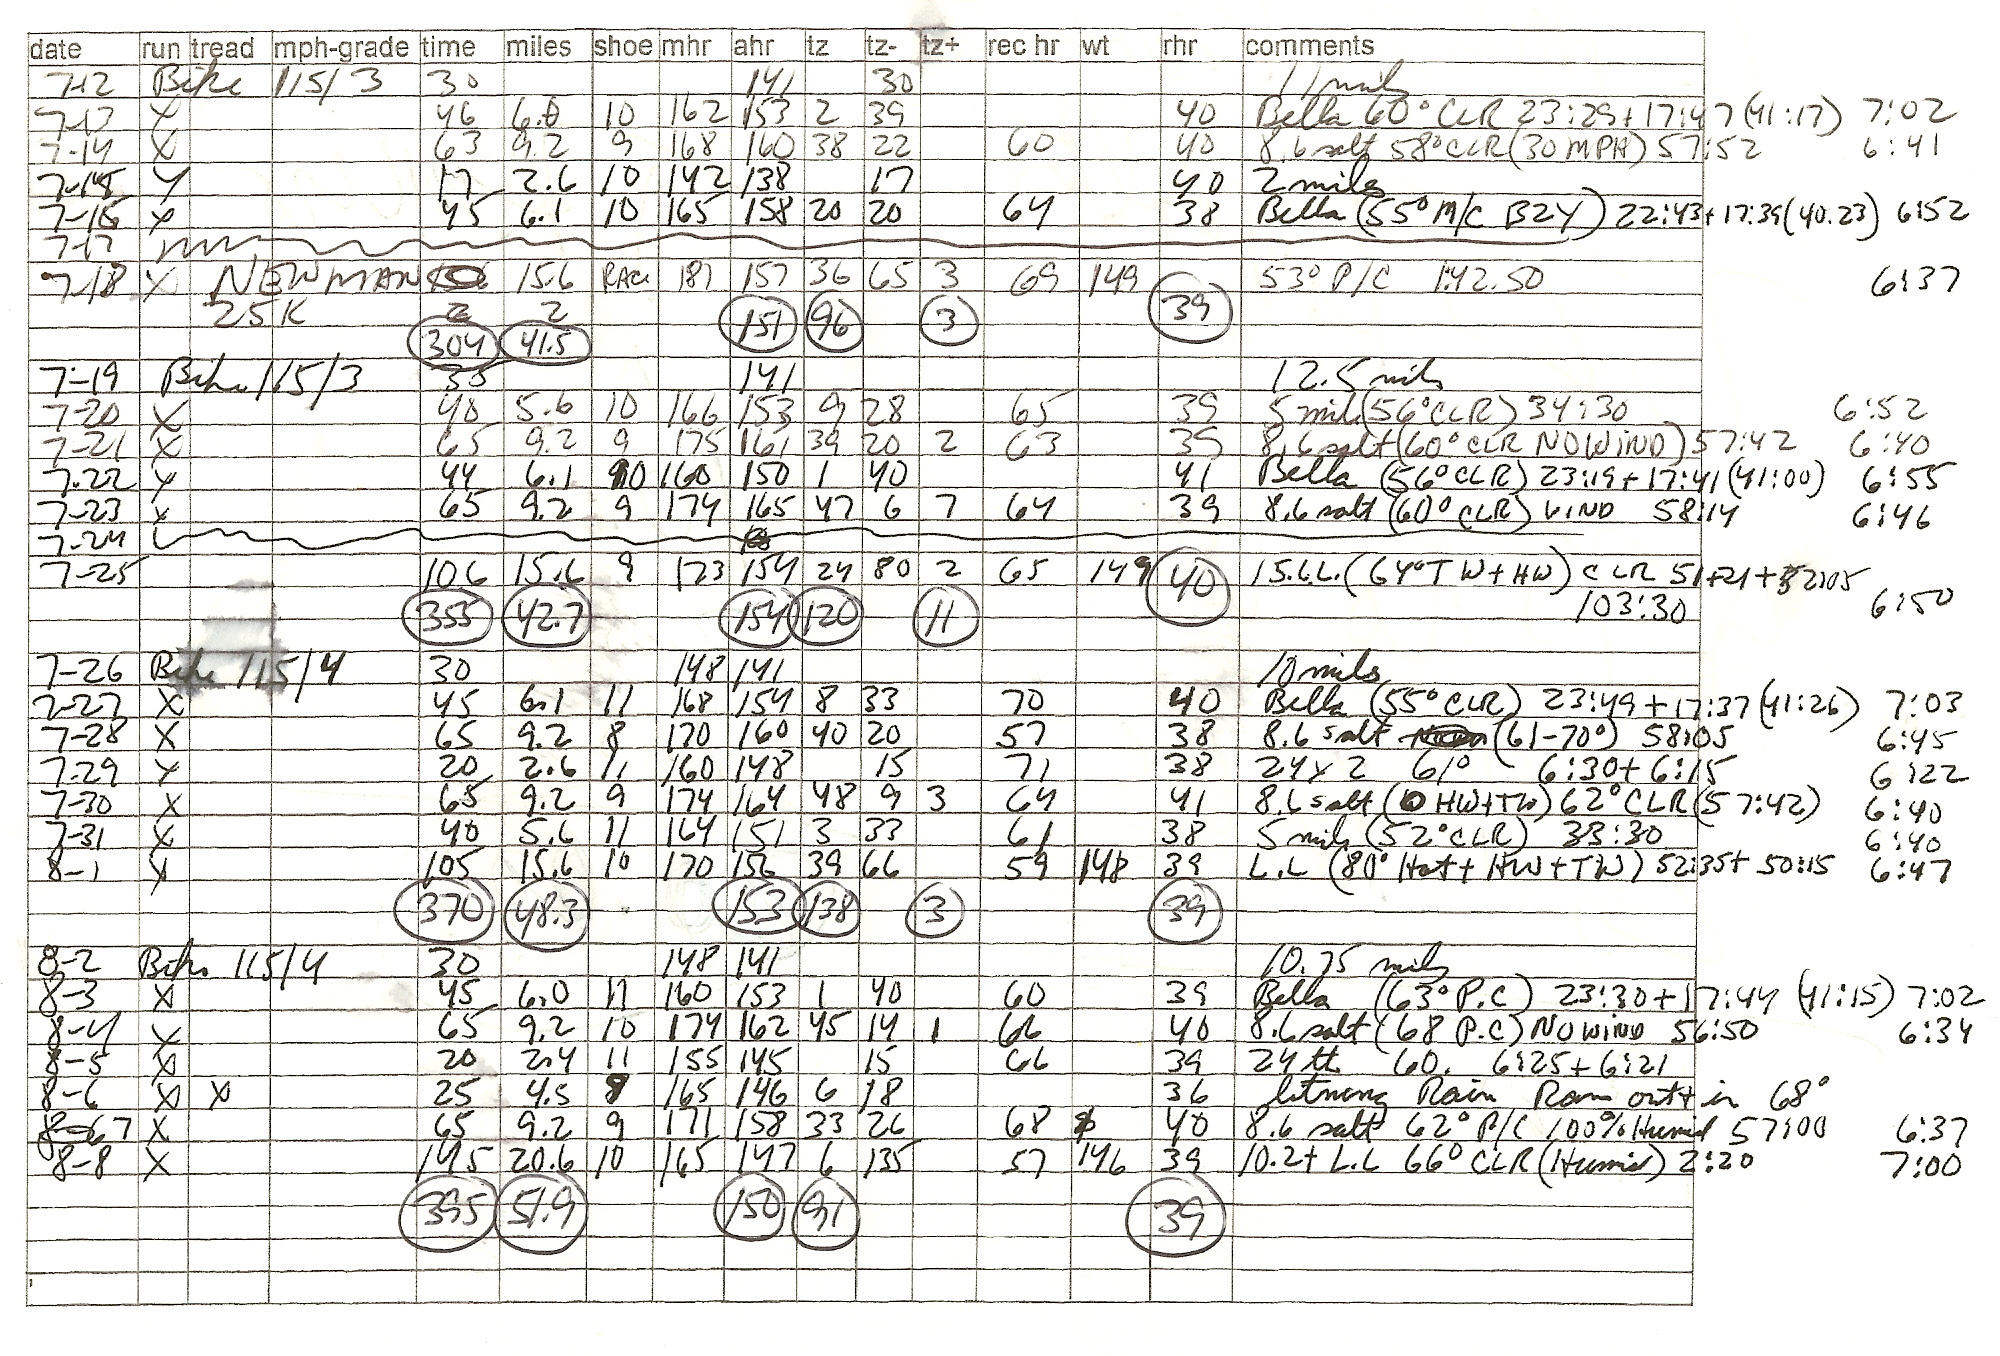 date run tread mph-grade time miles shoe mhr ahr tz tz- tz+ rec hr wt rhr comments
7-12 Bike 115/3 30 141 30 11 miles
7-13 X 46 6.0 10 162 153 2 39 40 Bella 60° CLR 23:29+17:47 (41:17) 7:02
7-14 X 63 9.2 9 168 160 38 22 60 40 8.6 salt 58° CLR (30 MPH) 57:52 6:41
7-15 X 17 2.6 10 142 138 17 40 2 miles
7-16 X 45 6.1 10 165 158 20 20 64 38 Bella (55° M/C BZY) 22:43+17:39 (40.23) 6:52
7-17
7-18 X NEWMAN 15.6 RACE 187 157 36 65 3 69 149 53° P/C 1:42.50 6:37
25K 2 2 151 96 3 39
304 41.5
7-19 Bike 115/3 35 141 12.5 miles
7-20 X 40 5.6 10 166 153 9 28 65 39 5 mile (56° CLR) 34:30 6:52
7-21 X 65 9.2 9 175 161 39 20 2 63 39 8.6 salt (60° CLR NO WIND) 57:42 6:40
7-22 X 44 6.1 10 160 150 1 40 41 Bella (56° CLR) 23:19+17:41 (41:00) 6:55
7-23 X 65 9.2 9 174 165 47 6 7 64 39 8.6 salt (60° CLR) WIND 58:14 6:46
7-24
7-25 106 15.6 9 173 154 24 80 2 65 149 40 15.6 L.L. (64° TW+HW) CLR 51+21+52:05
103:30 6:50
355 42.7 154 120 11
7-26 Bike 115/4 30 148 141 10 miles
7-27 X 45 6.1 11 168 154 8 33 70 40 Bella (55° CLR) 23:49+17:37 (41:26) 7:03
7-28 X 65 9.2 8 170 160 40 20 57 38 8.6 salt (61-70°) 58:05 6:45
7-29 X 20 2.6 11 160 148 15 71 38 24 x 2 61° 6:30+6:15 6:22
7-30 X 65 9.2 9 174 164 48 9 3 64 41 8.6 salt (HW+TW) 62° CLR (57:42) 6:40
7-31 X 40 5.6 11 164 151 3 33 61 38 5 mile (52° CLR) 33:30 6:40
8-1 X 105 15.6 10 170 156 39 66 59 148 39 L.L (80° Hot + HW+TW) 52:35+50:15 6:47
370 48.3 153 138 3 39
8-2 Bike 115/4 30 148 141 10.75 miles
8-3 X 45 6.0 11 160 153 1 40 60 39 Bella (63° P.C) 23:30+17:44 (41:15) 7:02
8-4 X 65 9.2 10 174 162 45 14 1 66 40 8.6 salt (68 P.C) NO WIND 56:50 6:34
8-5 X 20 2.4 11 155 145 15 66 39 24th 60. 6:25+6:21
8-6 X X 25 4.5 8 165 146 6 18 36 litning Rain Ran out + in 68°
8-7 X 65 9.2 9 171 158 33 26 68 40 8.6 salt 62° P/C 100% Humid 57:00 6:37
8-8 X 145 20.6 10 165 147 6 135 57 146 39 10.2+L.L 66° CLR (Humid) 2:20 7:00
395 51.9 150 91 39